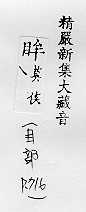 精嚴新集大藏音
眸 英 侯
(目部
R716)